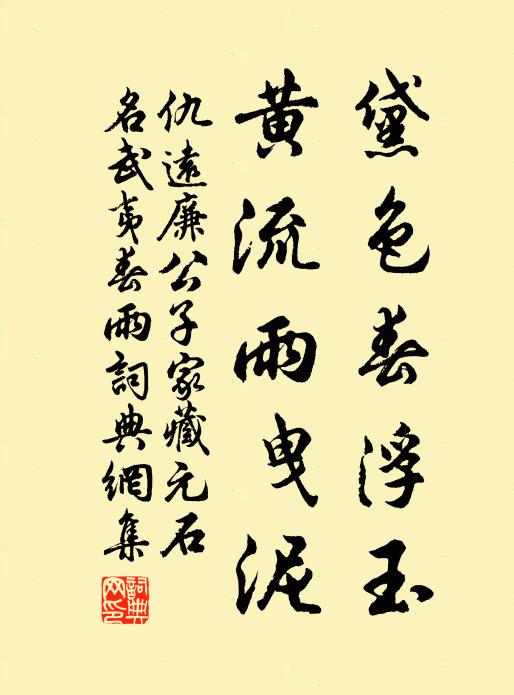 黛色春浮玉
黄流雨曳泥
仇遠廉公子家藏元石
名武夷春雨詞典網集
詞典網印